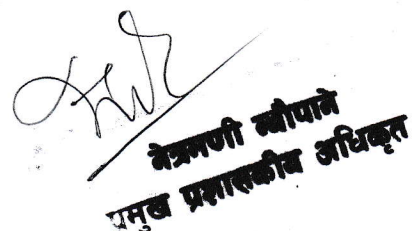 नेत्रमणी न्यौपाने
प्रमुख प्रशासकीय अधिकृत